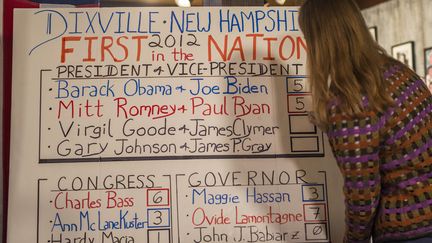 DIXVILLE · NEW HAMPSHIRE
FIRST 2012 in the NATION
PRESIDENT & VICE-PRESIDENT
Barack Obama & Joe Biden 5
Mitt Romney & Paul Ryan 5
Virgil Goode & James Clymer
Gary Johnson & James P. Gray
CONGRESS
Charles Bass 6
Ann McLane Kuster 3
Hardy Macia
GOVERNOR
Maggie Hassan 3
Ovide Lamontagne 7
John J. Babiarz 0